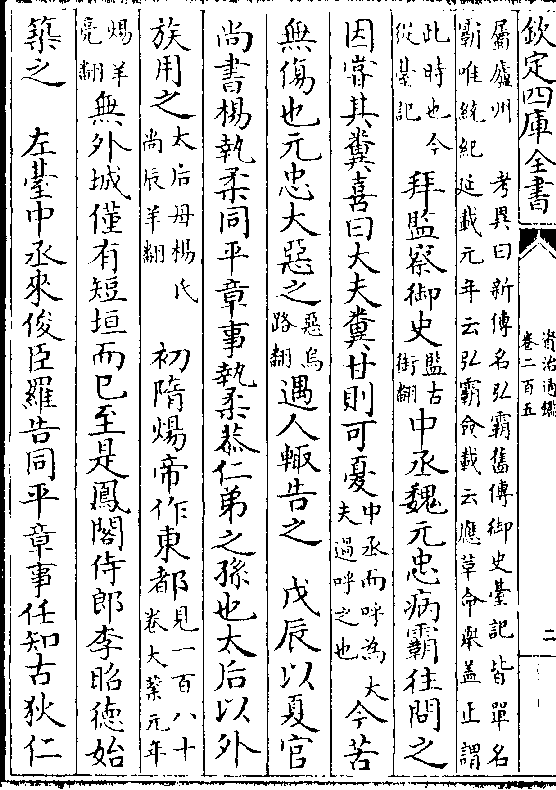 欽定四庫全書
資治通鑑
卷二百五
二
屬廬州　考異曰新傳名弘霸舊傳御史臺記皆單名
霸唯統紀延載元年云弘霸僉載云應革命舉蓋止謂
此時也今
從臺記
拜監察御史
監古
銜翻
中丞魏元忠病霸往問之
因嘗其糞喜曰大夫糞甘則可憂
中丞而呼為大
夫過呼之也
今苦
無傷也元忠大惡之
惡烏
路翻
遇人輙告之　戊辰以夏官
尚書楊執柔同平章事執柔恭仁弟之孫也太后以外
族用之
太后母楊氏
尚辰羊翻
初隋煬帝作東都
見一百八十
卷大業元年
煬羊
亮翻
無外城僅有短垣而已至是鳳閣侍郎李昭德始
築之　左臺中丞來俊臣羅告同平章事任知古狄仁